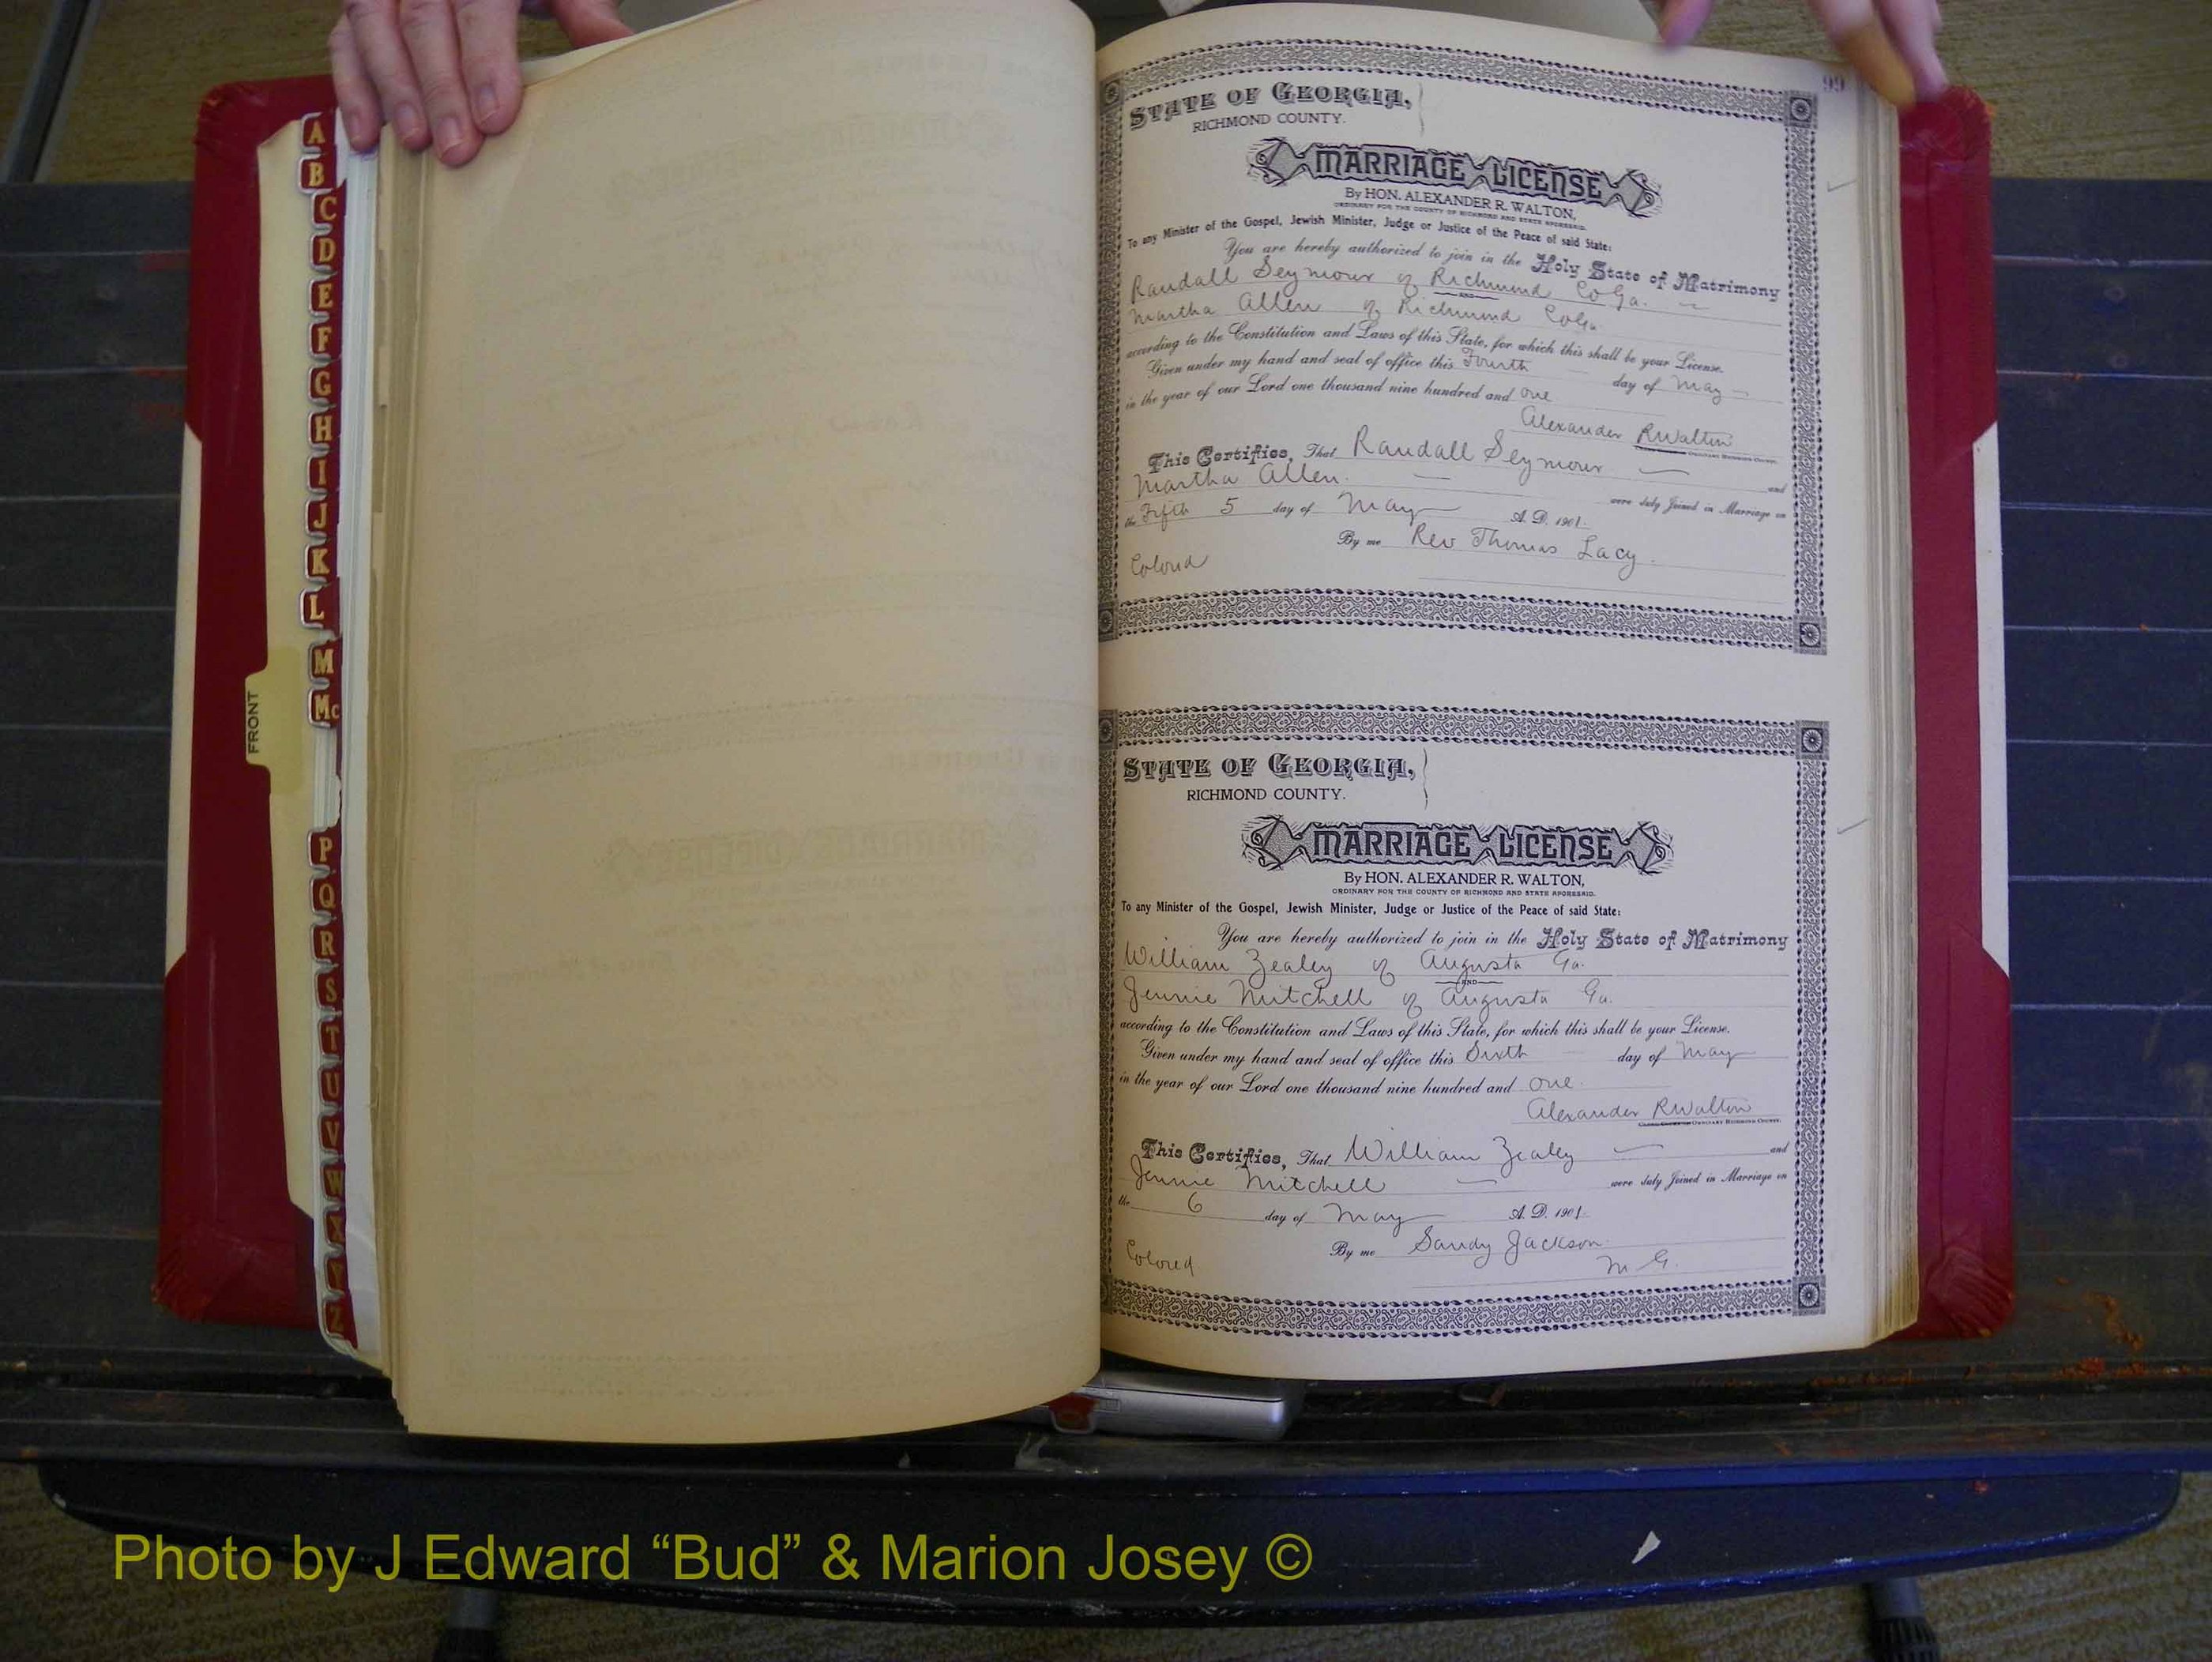 A
B
C
D
E
F
G
H
I
J
K
L
M
Mc
P
Q
R
S
T
U
V
W
X
Y
Z
FRONT
99
STATE OF GEORGIA,
RICHMOND COUNTY.
MARRIAGE LICENSE
By HON. ALEXANDER R. WALTON,
ORDINARY FOR THE COUNTY OF RICHMOND AND STATE AFORESAID.
To any Minister of the Gospel, Jewish Minister, Judge or Justice of the Peace of said State:
You are hereby authorized to join in the Holy State of Matrimony
Randall Seymour of Richmond Co Ga.
AND
Martha Allen of Richmond Co Ga.
according to the Constitution and Laws of this State, for which this shall be your License.
Given under my hand and seal of office this Fourth day of May
in the year of our Lord one thousand nine hundred and one
Alexander R Walton
ORDINARY RICHMOND COUNTY.
This Certifies, That Randall Seymour and
Martha Allen. were duly Joined in Marriage on
the Fifth 5 day of May A. D. 1901.
By me Rev Thomas Lacy.
Colord
STATE OF GEORGIA,
RICHMOND COUNTY.
MARRIAGE LICENSE
By HON. ALEXANDER R. WALTON,
ORDINARY FOR THE COUNTY OF RICHMOND AND STATE AFORESAID.
To any Minister of the Gospel, Jewish Minister, Judge or Justice of the Peace of said State:
You are hereby authorized to join in the Holy State of Matrimony
William Zealey of Augusta Ga.
AND
Jennie Mitchell of Augusta Ga.
according to the Constitution and Laws of this State, for which this shall be your License.
Given under my hand and seal of office this Sixth day of May
in the year of our Lord one thousand nine hundred and one.
Alexander R Walton
ORDINARY RICHMOND COUNTY.
This Certifies, That William Zealey and
Jennie Mitchell were duly Joined in Marriage on
the 6 day of May A. D. 1901.
By me Sandy Jackson.
Colored M G.
Photo by J Edward “Bud” & Marion Josey ©